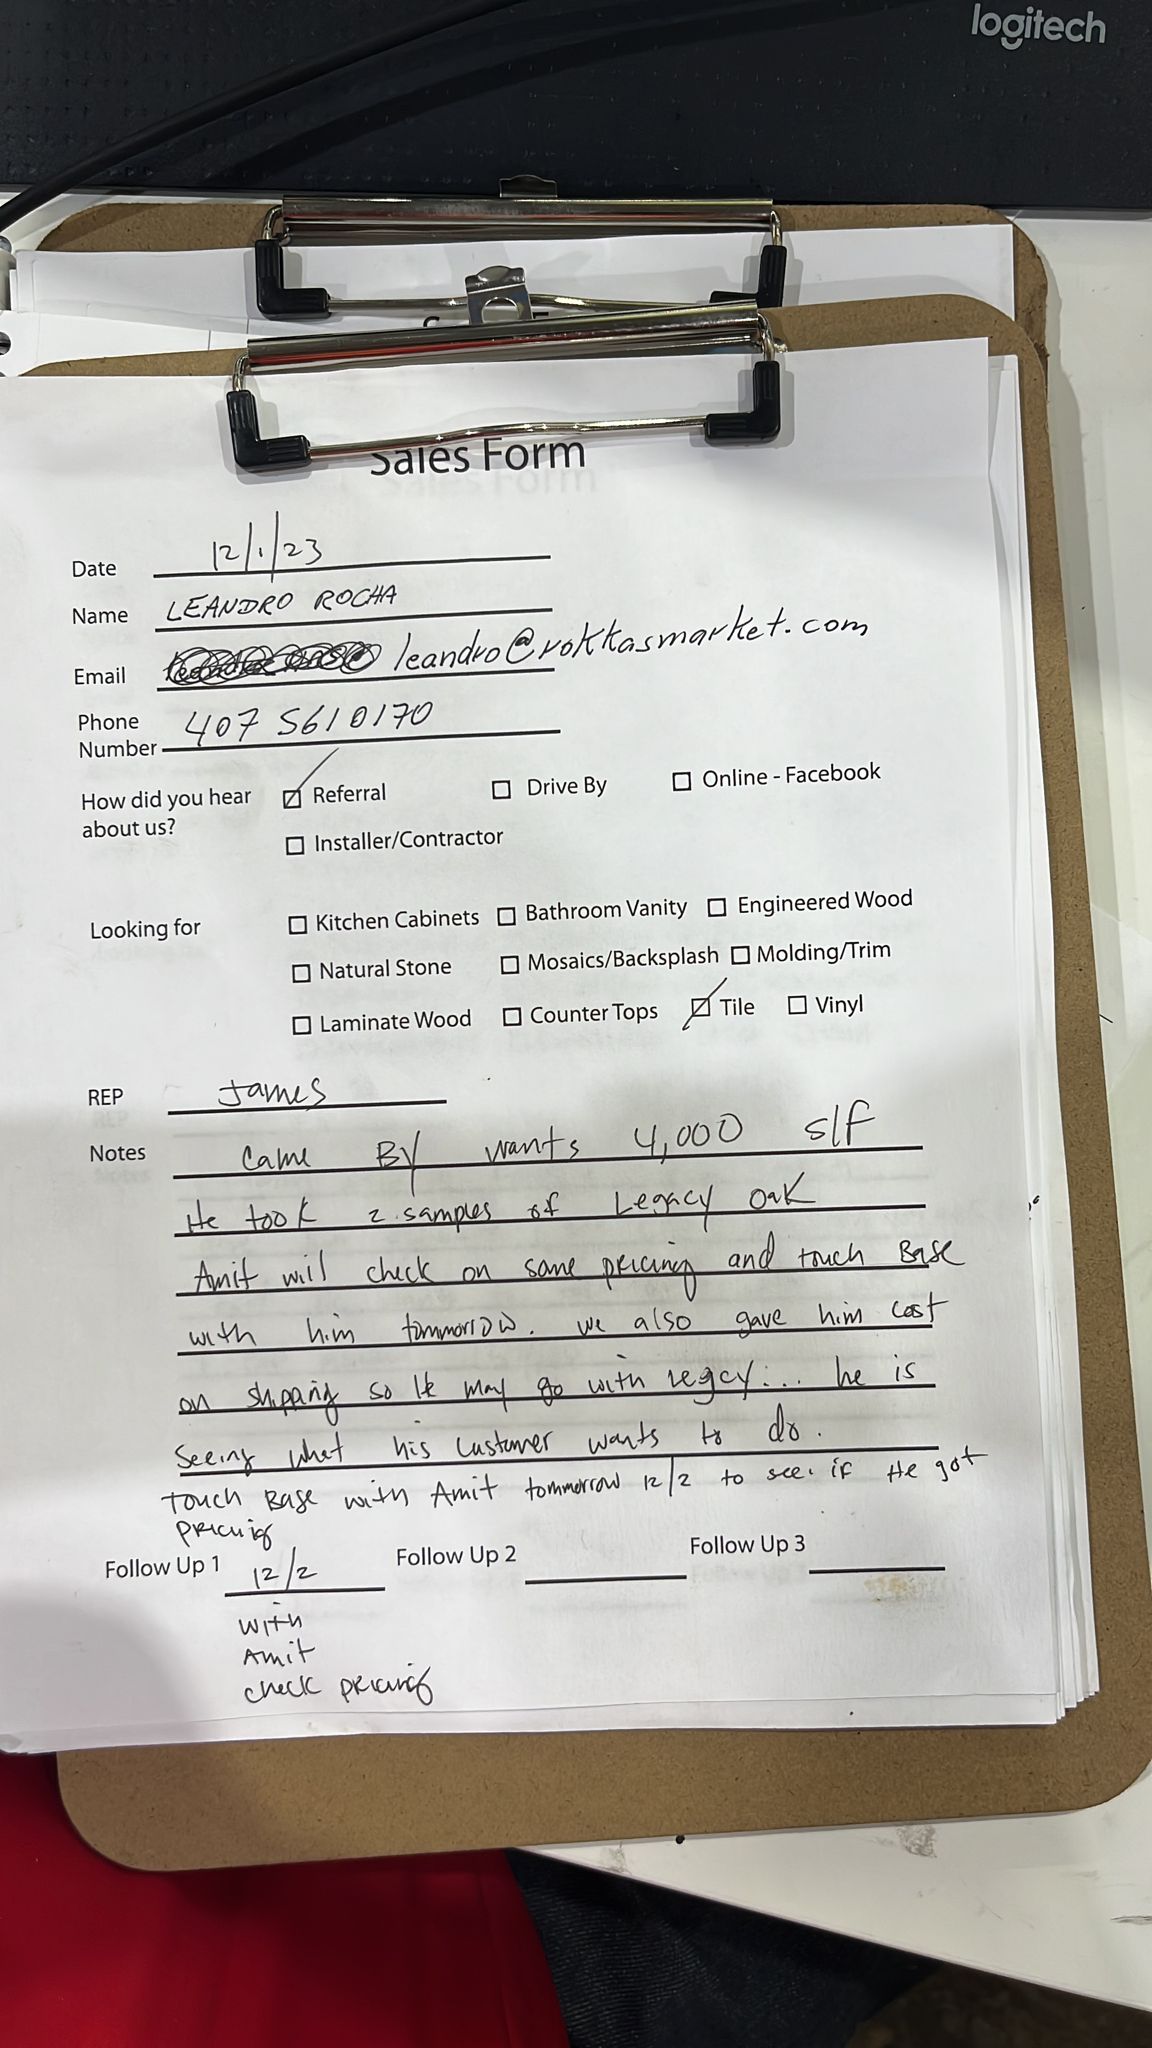 logitech
Sales Form
Date 12/1/23
Name LEANDRO ROCHA
Email leandro@rokkasmarket.com
Phone
Number 407 5610170
How did you hear
about us?
Referral Drive By Online - Facebook
Installer/Contractor
Looking for
Kitchen Cabinets Bathroom Vanity Engineered Wood
Natural Stone Mosaics/Backsplash Molding/Trim
Laminate Wood Counter Tops Tile Vinyl
REP James
Notes Came By wants 4,000 s/f
He took 2 samples of Legacy Oak
Amit will check on some pricing and touch Base
with him tommorrow. we also gave him cost
on shipping so He may go with legcy... he is
seeing what his customer wants to do.
Touch Base with Amit tommorrow 12/2 to see if He got
pricing
Follow Up 1 12/2 Follow Up 2 Follow Up 3
with
Amit
check pricing